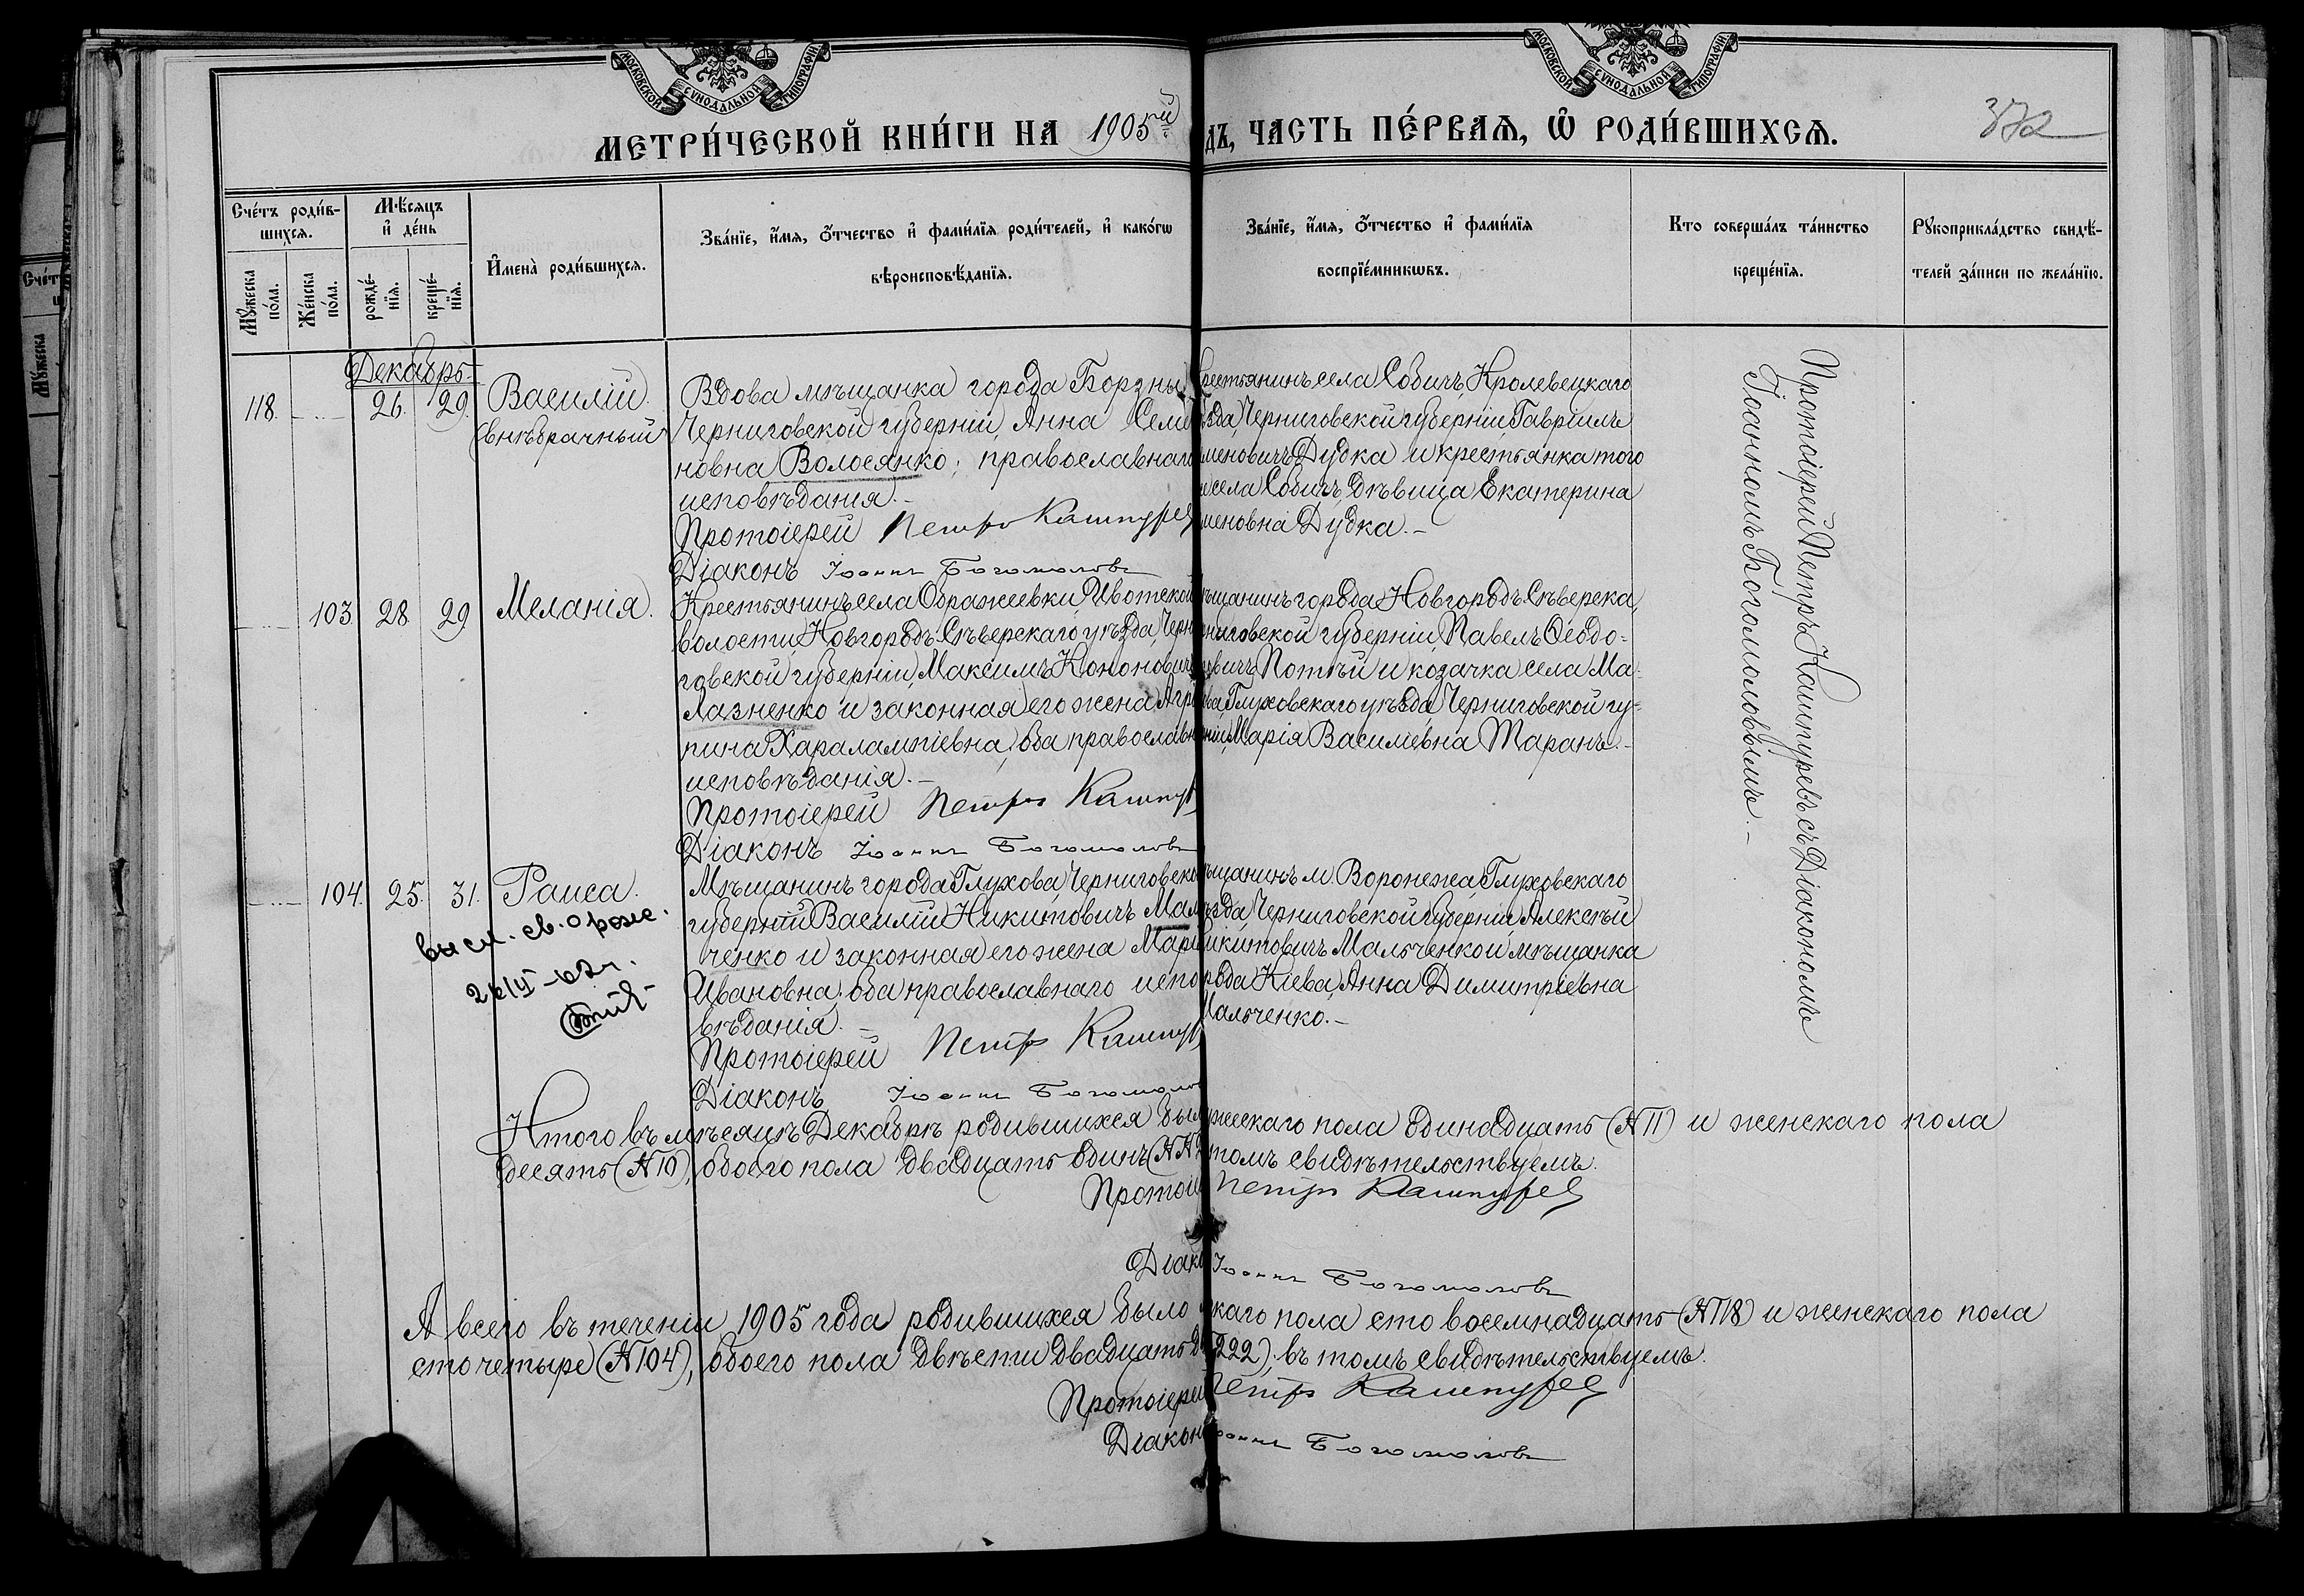 МОСКОВСКОЙ СУНОДАЛЬНОЙ ТИПОГРАФІИ
МОСКОВСКОЙ СУНОДАЛЬНОЙ ТИПОГРАФІИ
МЕТРИ́ЧЕСКОЙ КНИ́ГИ НА 1905й
дъ, ЧАСТЬ ПЕ́РВАѦ, Ѡ҆ РОДИ́ВШИХСѦ.
372
Сче́тъ роди́в-
шихсѧ.
Мꙋ́жеска
по́ла.
Же́нска
по́ла.
Мѣ́сѧцъ
и҆ де́нь
рожде́-
нїѧ.
креще́-
нїѧ.
И҆мена̀ роди́вшихсѧ.
Зва́нїе, и҆́мѧ, ѻ҆́тчество и҆ фами́лїѧ роди́телей, и҆ како́гѡ
вѣроисповѣ́данїѧ.
Зва́нїе, и҆́мѧ, ѻ҆́тчество и҆ фами́лїѧ
воспрїе́мникѡвъ.
Кто соверша́лъ та́инство
креще́нїѧ.
Рꙋкоприкла́дство свидѣ́-
телей за́писи по жела́нїю.
Декабрь
118. 26. 29. Василій.
(внѣбрачный)
Вдова мѣщанка города Борзны,
Черниговской губерніи, Анна Семе
новна Волосянко, православнаго
исповѣданія.-
Протоіерей Петръ Кашпурев
Діаконъ Іоаннъ Богомоловъ
крестьянинъ села Собичъ, Кролевецкаго
ѣзда Черниговской губерніи Гавріилъ
меновичъ Дудка и крестьянка того
села Собичъ, дѣвица Екатерина
меновна Дудка.-
103. 28. 29 Меланія.
Крестьянинъ села Ображіевки, Ивотской
волости, Новгородъ-Сѣверскаго уѣзда, Черни
говской губерніи, Максимъ Кононовичъ
Лазненко и законная его жена Агрип
пина Харалампіевна, оба православн
исповѣданія.-
Протоіерей Петръ Кашпу
Діаконъ Іоаннъ Богомоловъ
ѣщанинъ города Новгородъ-Сѣверска,
ниговской губерніи, Павелъ Ѳеодо-
овичъ Потѣй и козачка села Ма-
ва Глуховскаго уѣзда, Черниговской гу-
ніи, Марія Василіевна Таранъ.-
104. 25. 31. Раиса.
Мѣщанинъ города Глухова, Черниговско
губерніи Василій Никитовичъ Маль
ченко и законная его жена Марія
Ивановна, оба православнаго испо
вѣданія.-
Протоіерей Петръ Кашпу
Діаконъ Іоаннъ Богомоло
ѣщанинъ м. Воронежа, Глуховскаго
ѣзда, Черниговской губерніи, Алексѣй
икитовичъ Мальченко и мѣщанка
рода Кіева, Анна Димитріевна
Мальченко.-
высл. св. о рожд.
Протоіерей Петръ Кашпуревъ съ Діакономъ
Іоанномъ Богомоловымъ.-
Итого въ мѣсяцѣ Декабрѣ родившихся был
жескаго пола одинадцать (№ 11) и женскаго пола
десять (№ 10), обоего пола двадцать одинъ (№
томъ свидѣтельствуемъ.
Протоіе Петръ Кашпурев
Діако Іоаннъ Богомоловъ
А всего въ теченіи 1905 года родившихся было
скаго пола сто восемнадцать (№ 118) и женскаго пола
сто четыре (№ 104), обоего пола двѣсти двадцать дв
222), въ томъ свидѣтельствуемъ.
Протоіерей Петръ Кашпурев
Діаконъ Іоаннъ Богомоловъ